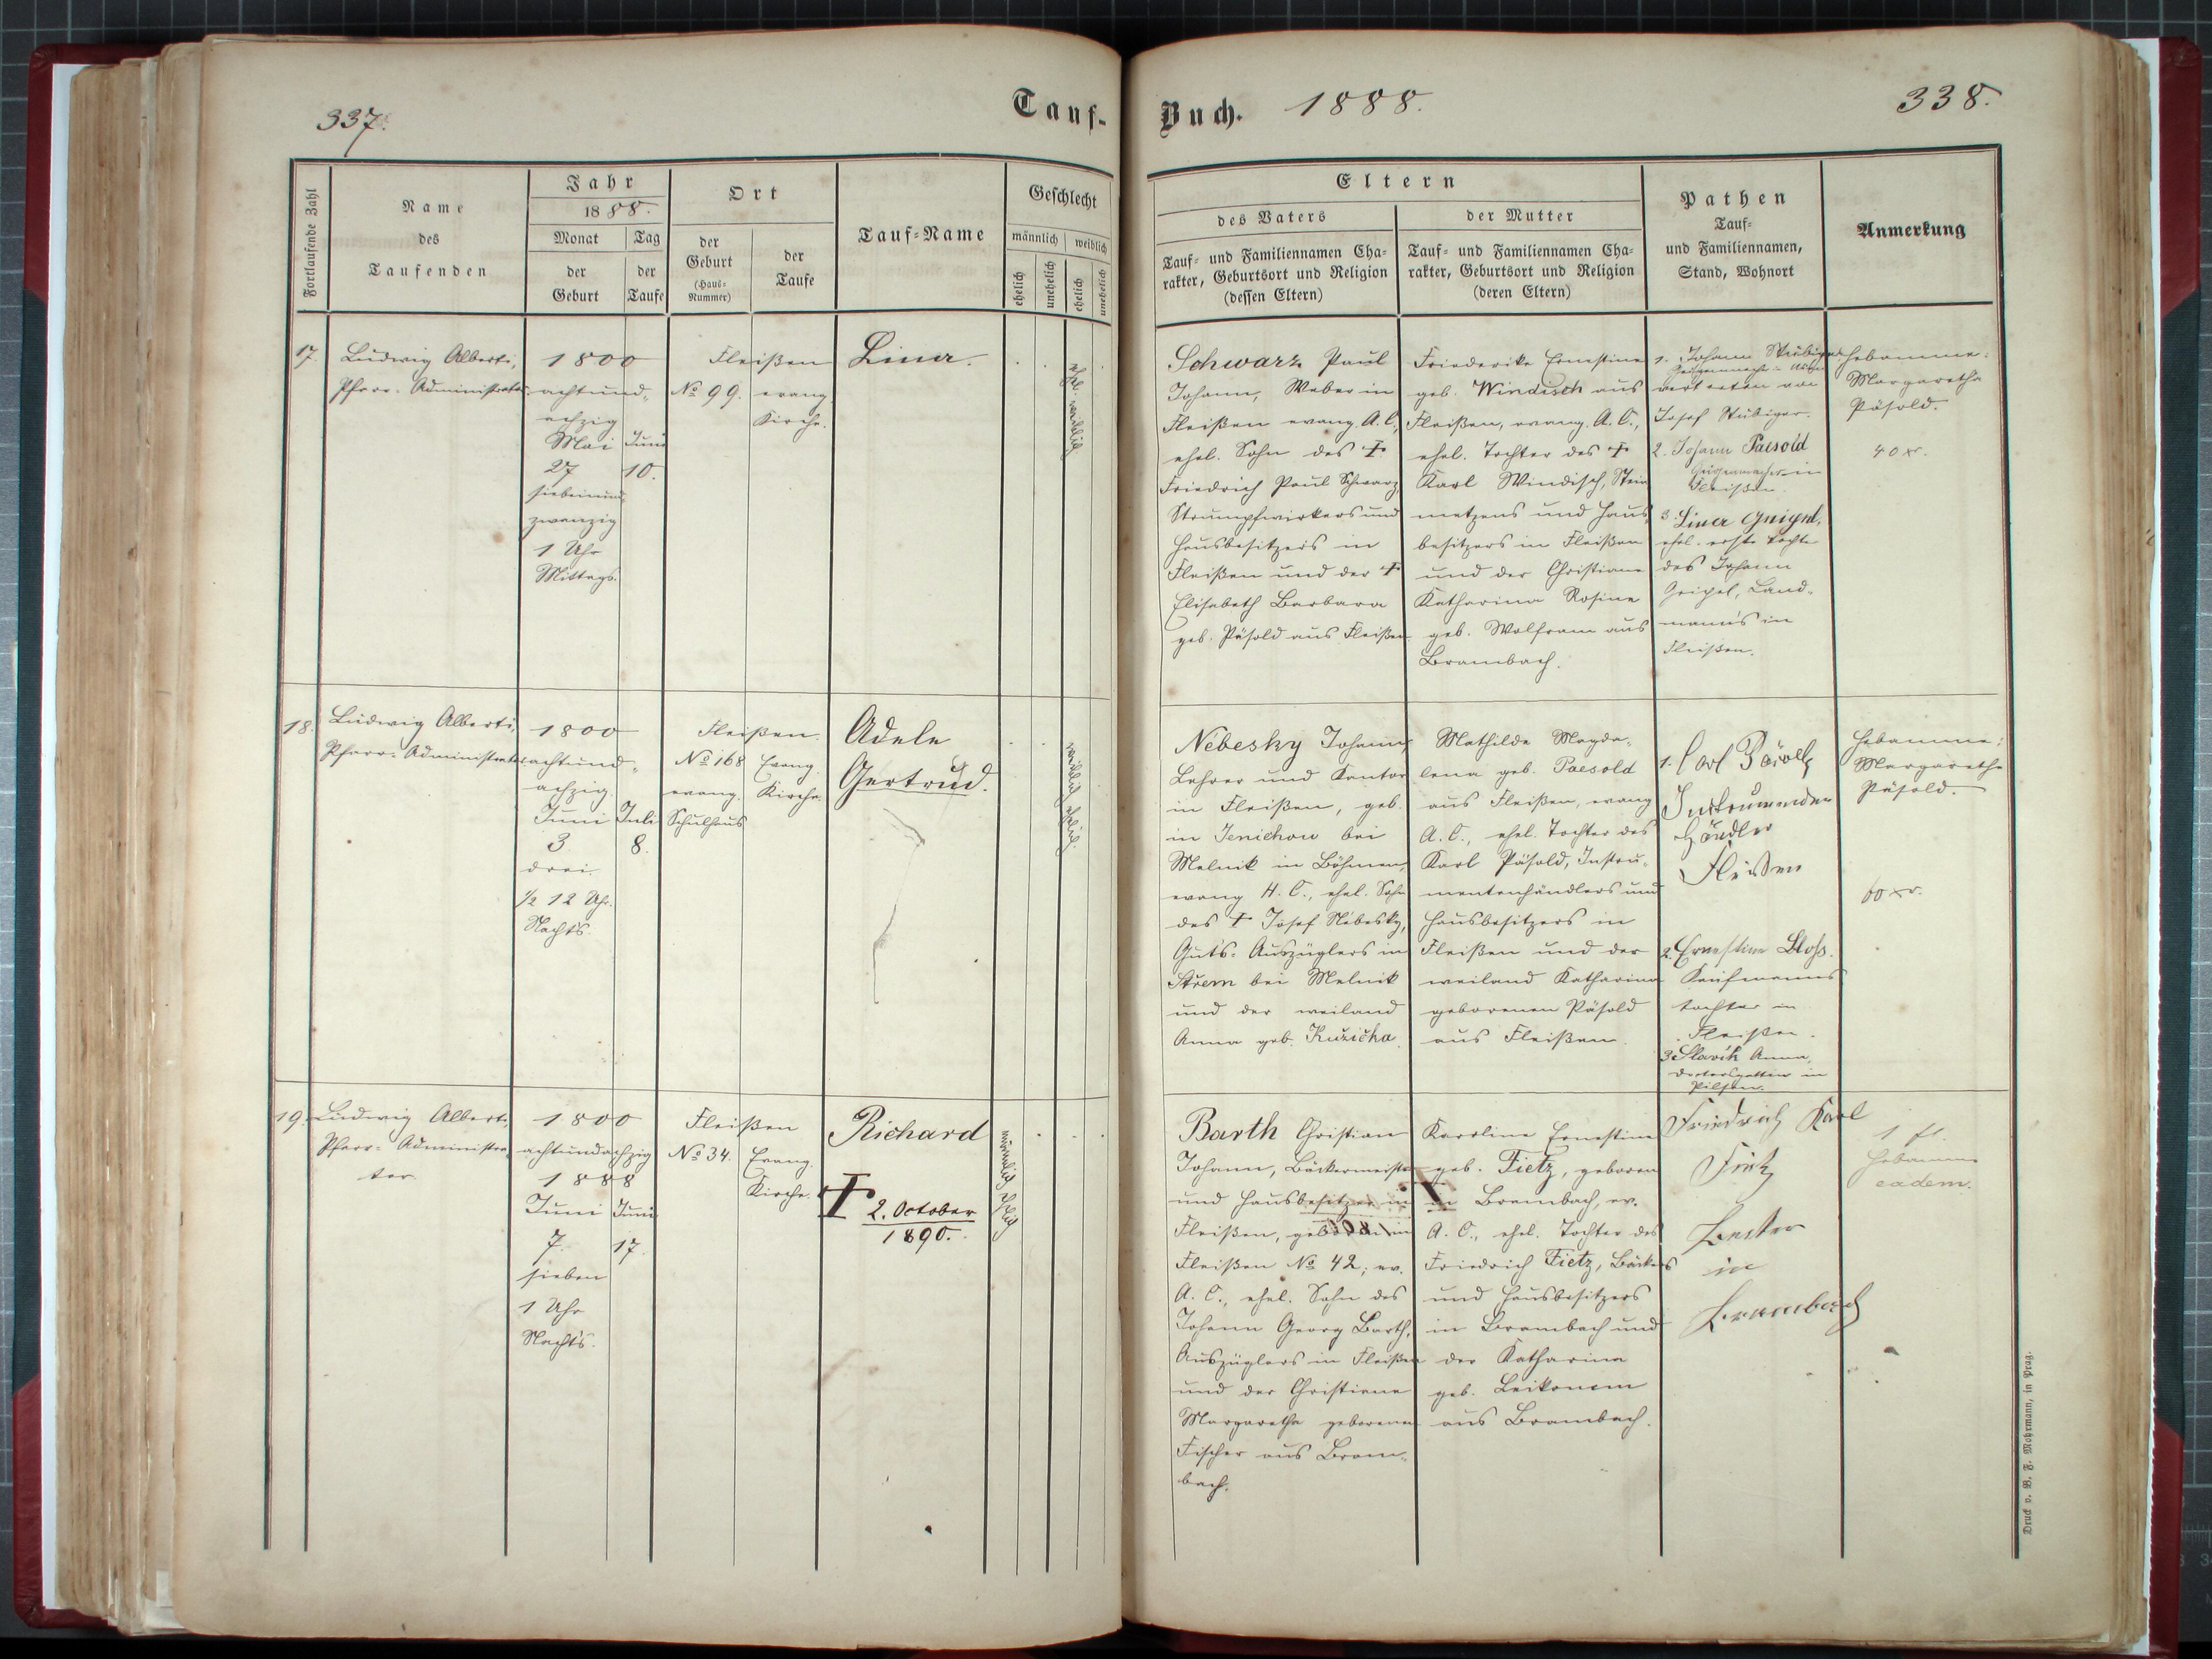 337.
Tauf-
Fortlaufende Zahl
Name
des
Taufenden
Jahr
1888.
Monat
Tag
der
Geburt
der
Taufe
Ort
der
Geburt
(Haus-
Nummer)
der
Taufe
Tauf-Name
Geschlecht
männlich
weiblich
ehelich
unehelich
ehelich
unehelich
17.
Ludwig Alberti,
Pfarr-Administrator
1800
achtund-
achzig
Mai
27
siebenund-
zwanzig
1 Uhr
Mittags.
Juni
10.
Fleißen
No 99.
evang.
Kirche.
Lina.
ehel. weiblich
18.
Ludwig Alberti,
Pfarr-Administrator
1800
achtund-
achzig.
Juni
3
drei.
½ 12 Uhr.
Nachts.
Juli
8.
Fleißen.
No 168
evang.
Schulhaus
Evang.
Kirche.
Adele
Gertrud.
weiblich ehelich
19.
Ludwig Alberti,
Pfarr-Administra-
tor
1800
achtundachzig
1888
Juni
7.
sieben
1 Uhr
Nachts.
Juni
17.
Fleißen
No 34.
Evang.
Kirche.
Richard
† 2. October
1890.
männlich ehelich
Buch. 1888.
338.
Eltern
des Vaters
Tauf- und Familiennamen Cha-
rakter, Geburtsort und Religion
(dessen Eltern)
der Mutter
Tauf- und Familiennamen Cha-
rakter, Geburtsort und Religion
(deren Eltern)
Pathen
Tauf-
und Familiennamen,
Stand, Wohnort
Anmerkung
Schwarz Paul
Johann, Weber in
Fleißen evang. A. C.,
ehel. Sohn des †
Friedrich Paul Schwarz,
Strumpfwirkers und
Hausbesitzers in
Fleißen und der †
Elisabeth Barbara
geb. Päsold aus Fleißen
Friederike Ernestine
geb. Windisch aus
Fleißen, evang. A. C.,
ehel. Tochter des †
Karl Windisch, Stein
metzens und Haus-
besitzers in Fleißen
und der Christiane
Katharina Rosine
geb. Wolfram aus
Brambach.
1. Johann Stübiger
Geigenmacher in
vertreten von
Josef Stübiger.
2. Johann Paesold
Geigenmacher in
Fleißen.
3 Lina Geipel,
ehel. erste Tochter
des Johann
Geipel, Land-
mann's in
Fleißen.
Hebamme:
Margaretha
Päsold.
40 xr.
Nebesky Johann,
Lehrer und Kantor
in Fleißen, geb.
in Jenichow bei
Melnik in Böhmen,
evang. H. C., ehel. Sohn
des † Josef Nebesky,
Guts-Auszüglers in
Střem bei Melnik
und der weiland
Anna geb. Kužička.
Mathilde Magda-
lena geb. Paesold
aus Fleißen, evang
A. C., ehel. Tochter des
Karl Päsold, Instru-
mentenhändlers und
Hausbesitzers in
Fleißen und der
weiland Katharina
geborenen Päsold
aus Fleißen.
1. Carl
Instrumenden
Händler
Fleißen
2. Ernestine
Kaufmanns
tochter in
Fleißen.
3 Slavik Anna,
Doctorsgattin in
Pilsen.
Hebamme:
Margaretha
Päsold.
60 xr.
Barth Christian
Johann, Bäckermeister
und Hausbesitzer in
Fleißen, geboren in
Fleißen No 42; ev.
A. C., ehel. Sohn des
Johann Georg Barth,
Auszüglers in Fleißen
und der Christiane
Margaretha geborenen
Fischer aus Bram-
bach.
Karoline Ernestine
geb. Fietz, geboren
in Brambach, ev.
A. C., ehel. Tochter des
Friedrich Fietz, Bäckers
und Hausbesitzers
in Brambach und
der Katharina
geb. Leikonem
aus Brambach.
Friedrich Karl
Fietz
in
Brambach
1 fl.
Hebamme
eadem.
Druck v. B. F. Mohrmann, in Prag.